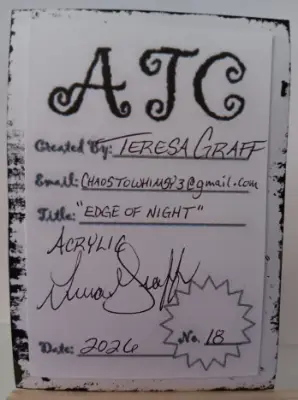 ATC
Created By: TERESA GRAFF
Email: CHAOSTOWHIMSY3@gmail.com
Title: "EDGE OF NIGHT"
ACRYLIC
Teresa Graff
No. 18
Date: 2026